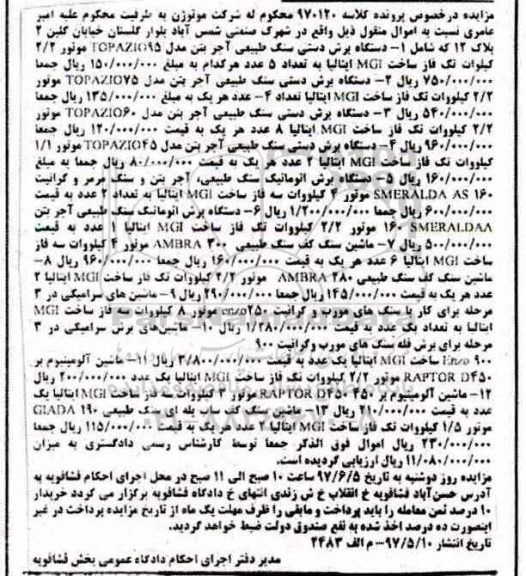 مزایده درخصوص پرونده کلاسه ۹۷۰۱۲۰ محکوم له شرکت موتوژن به طرفیت محکوم علیه امیر
عامری نسبت به اموال منقول ذیل واقع در شهرک صنعتی شمس آباد بلوار گلستان خیابان گلبن ۲
پلاک ۱۲ که شامل ۱- دستگاه برش دستی سنگ طبیعی آجر بتن مدل TOPAZIO۹۵ موتور ۲/۲
کیلوات تک فاز ساخت MGI ایتالیا به تعداد ۵ عدد هرکدام به مبلغ ۱۵۰/۰۰۰/۰۰۰ ریال جمعا
۷۵۰/۰۰۰/۰۰۰ ریال ۲- دستگاه برش دستی سنگ طبیعی آجر بتن مدل TOPAZIO۷۵ موتور
۲/۲ کیلووات تک فاز ساخت MGI ایتالیا تعداد ۴- عدد هر یک به مبلغ ۱۳۵/۰۰۰/۰۰۰ ریال جمعا
۵۴۰/۰۰۰/۰۰۰ ریال ۳- دستگاه برش دستی سنگ طبیعی آجر بتن مدل TOPAZIO۶۰ موتور
۲/۲ کیلووات تک فاز ساخت MGI ایتالیا ۸ عدد هر یک به قیمت ۱۲۰/۰۰۰/۰۰۰ ریال جمعا
۹۶۰/۰۰۰/۰۰۰ ریال ۴- دستگاه برش دستی سنگ طبیعی آجر بتن مدل TOPAZIO۴۵ موتور ۱/۱
کیلووات تک فاز ساخت MGI ایتالیا ۲ عدد هر یک به قیمت ۸۰/۰۰۰/۰۰۰ ریال جمعا به مبلغ
۱۶۰/۰۰۰/۰۰۰ ریال ۵- دستگاه برش اتوماتیک سنگ طبیعی، آجر بتن و سنگ مرمر و گرانیت
SMERALDA AS ۱۶۰ موتور ۲ کیلووات سه فاز ساخت MGI ایتالیا به تعداد ۲ عدد به قیمت
۶۰۰/۰۰۰/۰۰۰ ریال جمعا ۱/۲۰۰/۰۰۰/۰۰۰ ریال ۶- دستگاه برش اتوماتیک سنگ طبیعی آجر بتن
SMERALDAA ۱۶۰ موتور ۲/۲ کیلووات تک فاز ساخت MGI ایتالیا ۱ عدد به قیمت
۵۰۰/۰۰۰/۰۰۰ ریال ۷- ماشین سنگ کف سنگ طبیعی AMBRA ۳۰۰ موتور ۴ کیلووات سه فاز
ساخت MGI ایتالیا ۶ عدد هر یک به قیمت ۱۶۰/۰۰۰/۰۰۰ ریال جمعا ۹۶۰/۰۰۰/۰۰۰ ریال ۸-
ماشین سنگ کف سنگ طبیعی AMBRA ۲۸۰ موتور ۲/۲ کیلووات تک فاز ساخت MGI ایتالیا ۲
عدد هر یک به قیمت ۱۴۵/۰۰۰/۰۰۰ ریال جمعا ۲۹۰/۰۰۰/۰۰۰ ریال ۹- ماشین های سرامیکی در ۳
مرحله برای کار با سنگ های مورب و گرانیت enzo۲۵۰ موتور ۸ کیلووات سه فاز ساخت MGI
ایتالیا به تعداد یک عدد به قیمت ۱/۲۸۰/۰۰۰/۰۰۰ ریال ۱۰- ماشین‌های برش سرامیکی در ۳
مرحله برای برش فله سنگ های مورب وگرانیت ۹۰۰
Enzo ۹۰۰ ساخت MGI ایتالیا یک عدد به قیمت ۳/۸۰۰/۰۰۰/۰۰۰ ریال ۱۱- ماشین آلومینیوم بر
RAPTOR D۴۵۰ موتور ۲/۲ کیلووات تک فاز ساخت MGI ایتالیا یک عدد ۲۰۰/۰۰۰/۰۰۰ ریال
۱۲- ماشین آلومینیوم بر ۴۵۰ RAPTOR D۴۵۰ موتور ۳ کیلووات سه فاز ساخت MGI ایتالیا یک
عدد به قیمت ۲۱۰/۰۰۰/۰۰۰ ریال ۱۳- ماشین سنگ کف ساب پله ای سنگ طبیعی GIADA ۱۹۰
موتور ۱/۵ کیلووات تک فاز ساخت MGI ایتالیا ۲ عدد هر یک به قیمت ۱۱۵/۰۰۰/۰۰۰ ریال جمعا
۲۳۰/۰۰۰/۰۰۰ ریال اموال فوق الذکر جمعا توسط کارشناس رسمی دادگستری به میزان
۱۱/۰۸۰/۰۰۰/۰۰۰ ریال ارزیابی گردیده است.
مزایده روز دوشنبه به تاریخ ۹۷/۶/۵ ساعت ۱۰ صبح الی ۱۱ صبح در محل اجرای احکام فشافویه به
آدرس حسن‌آباد فشافویه خ انقلاب خ ش زندی انتهای خ دادگاه فشافویه برگزار می گردد خریدار
۱۰ درصد ثمن معامله را باید پرداخت و مابقی را ظرف مهلت یک ماه از تاریخ مزایده پرداخت در غیر
اینصورت ده درصد اخذ شده به نفع صندوق دولت ضبط خواهد گردید.
تاریخ انتشار ۹۷/۵/۱۰- م الف ۴۴۸۳
مدیر دفتر اجرای احکام دادگاه عمومی بخش فشافویه